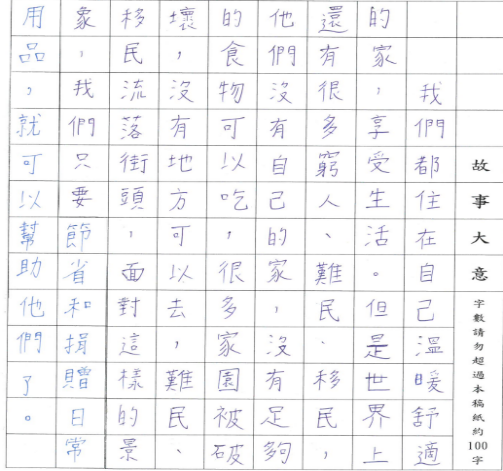 故事大意
字數請勿超過本稿紙約100字
我們都住在自己溫暖舒適
的家,享受生活。但是世界上
還有很多窮人、難民、移民,
他們沒有自己的家,沒有足夠
的食物可以吃,很多家園被破
壞,沒有地方可以去,難民、
移民流落街頭,面對這樣的景
象,我們只要節省和捐贈日常
用品,就可以幫助他們了。